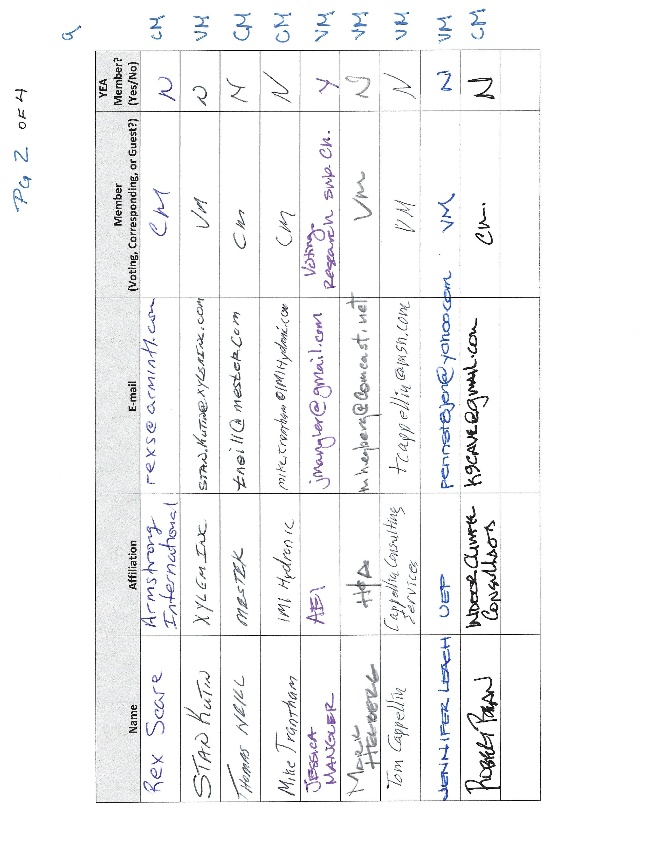 PG 2 OF 4
Name
Affiliation
E-mail
Member
(Voting, Corresponding, or Guest?)
YEA
Member?
(Yes/No)
Rex Scare
Armstrong
International
rexs@armintl.com
CM
N
CM
STAN KUTIN
XYLEM INC
STAN.KUTIN@XYLEMINC.COM
VM
N
VM
THOMAS NEILL
MESTEK
tneill@mestek.com
CM
N
CM
Mike Trantham
IMI Hydronic
mike.trantham@IMIHydronic.com
CM
N
CM
JESSICA
MANGLER
AEI
jmangler@gmail.com
Voting-
Research sub Ch.
Y
VM
MARK
HEGBERG
mhegberg@comcast.net
VM
N
VM
Tom Cappellin
Cappellin Consulting
Services
tcappellin@msn.com
VM
N
VM
JENNIFER LEACH
UEP
VM
N
VM
ROBERT
INDOOR CLIMATE
CONSULTANTS
K9CAVE@gmail.com
CM.
N
CM